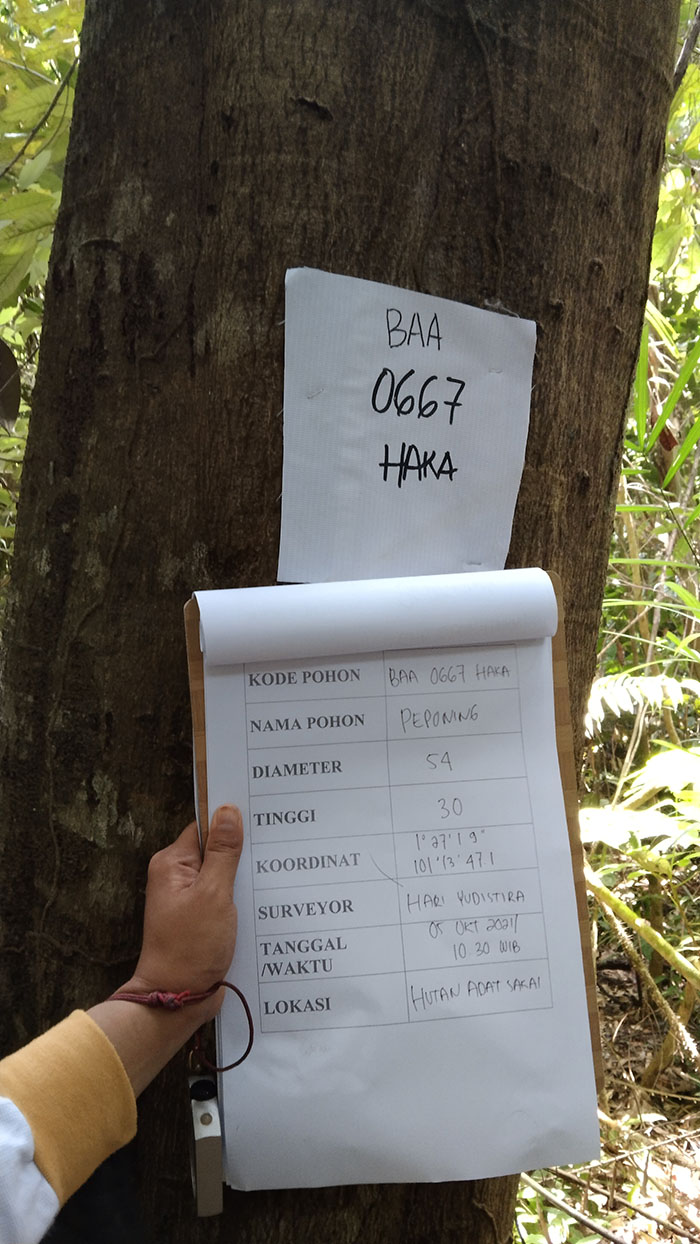 BAA
0667
HAKA
KODE POHON BAA 0667 HAKA
NAMA POHON PEPONING
DIAMETER 54
TINGGI 30
KOORDINAT 1° 27' 1 9"
101° 13' 47 1
SURVEYOR HARI YUDISTIRA
TANGGAL 05 OKT 2021/
/WAKTU 10 30 WIB
LOKASI HUTAN ADAT SAKAI